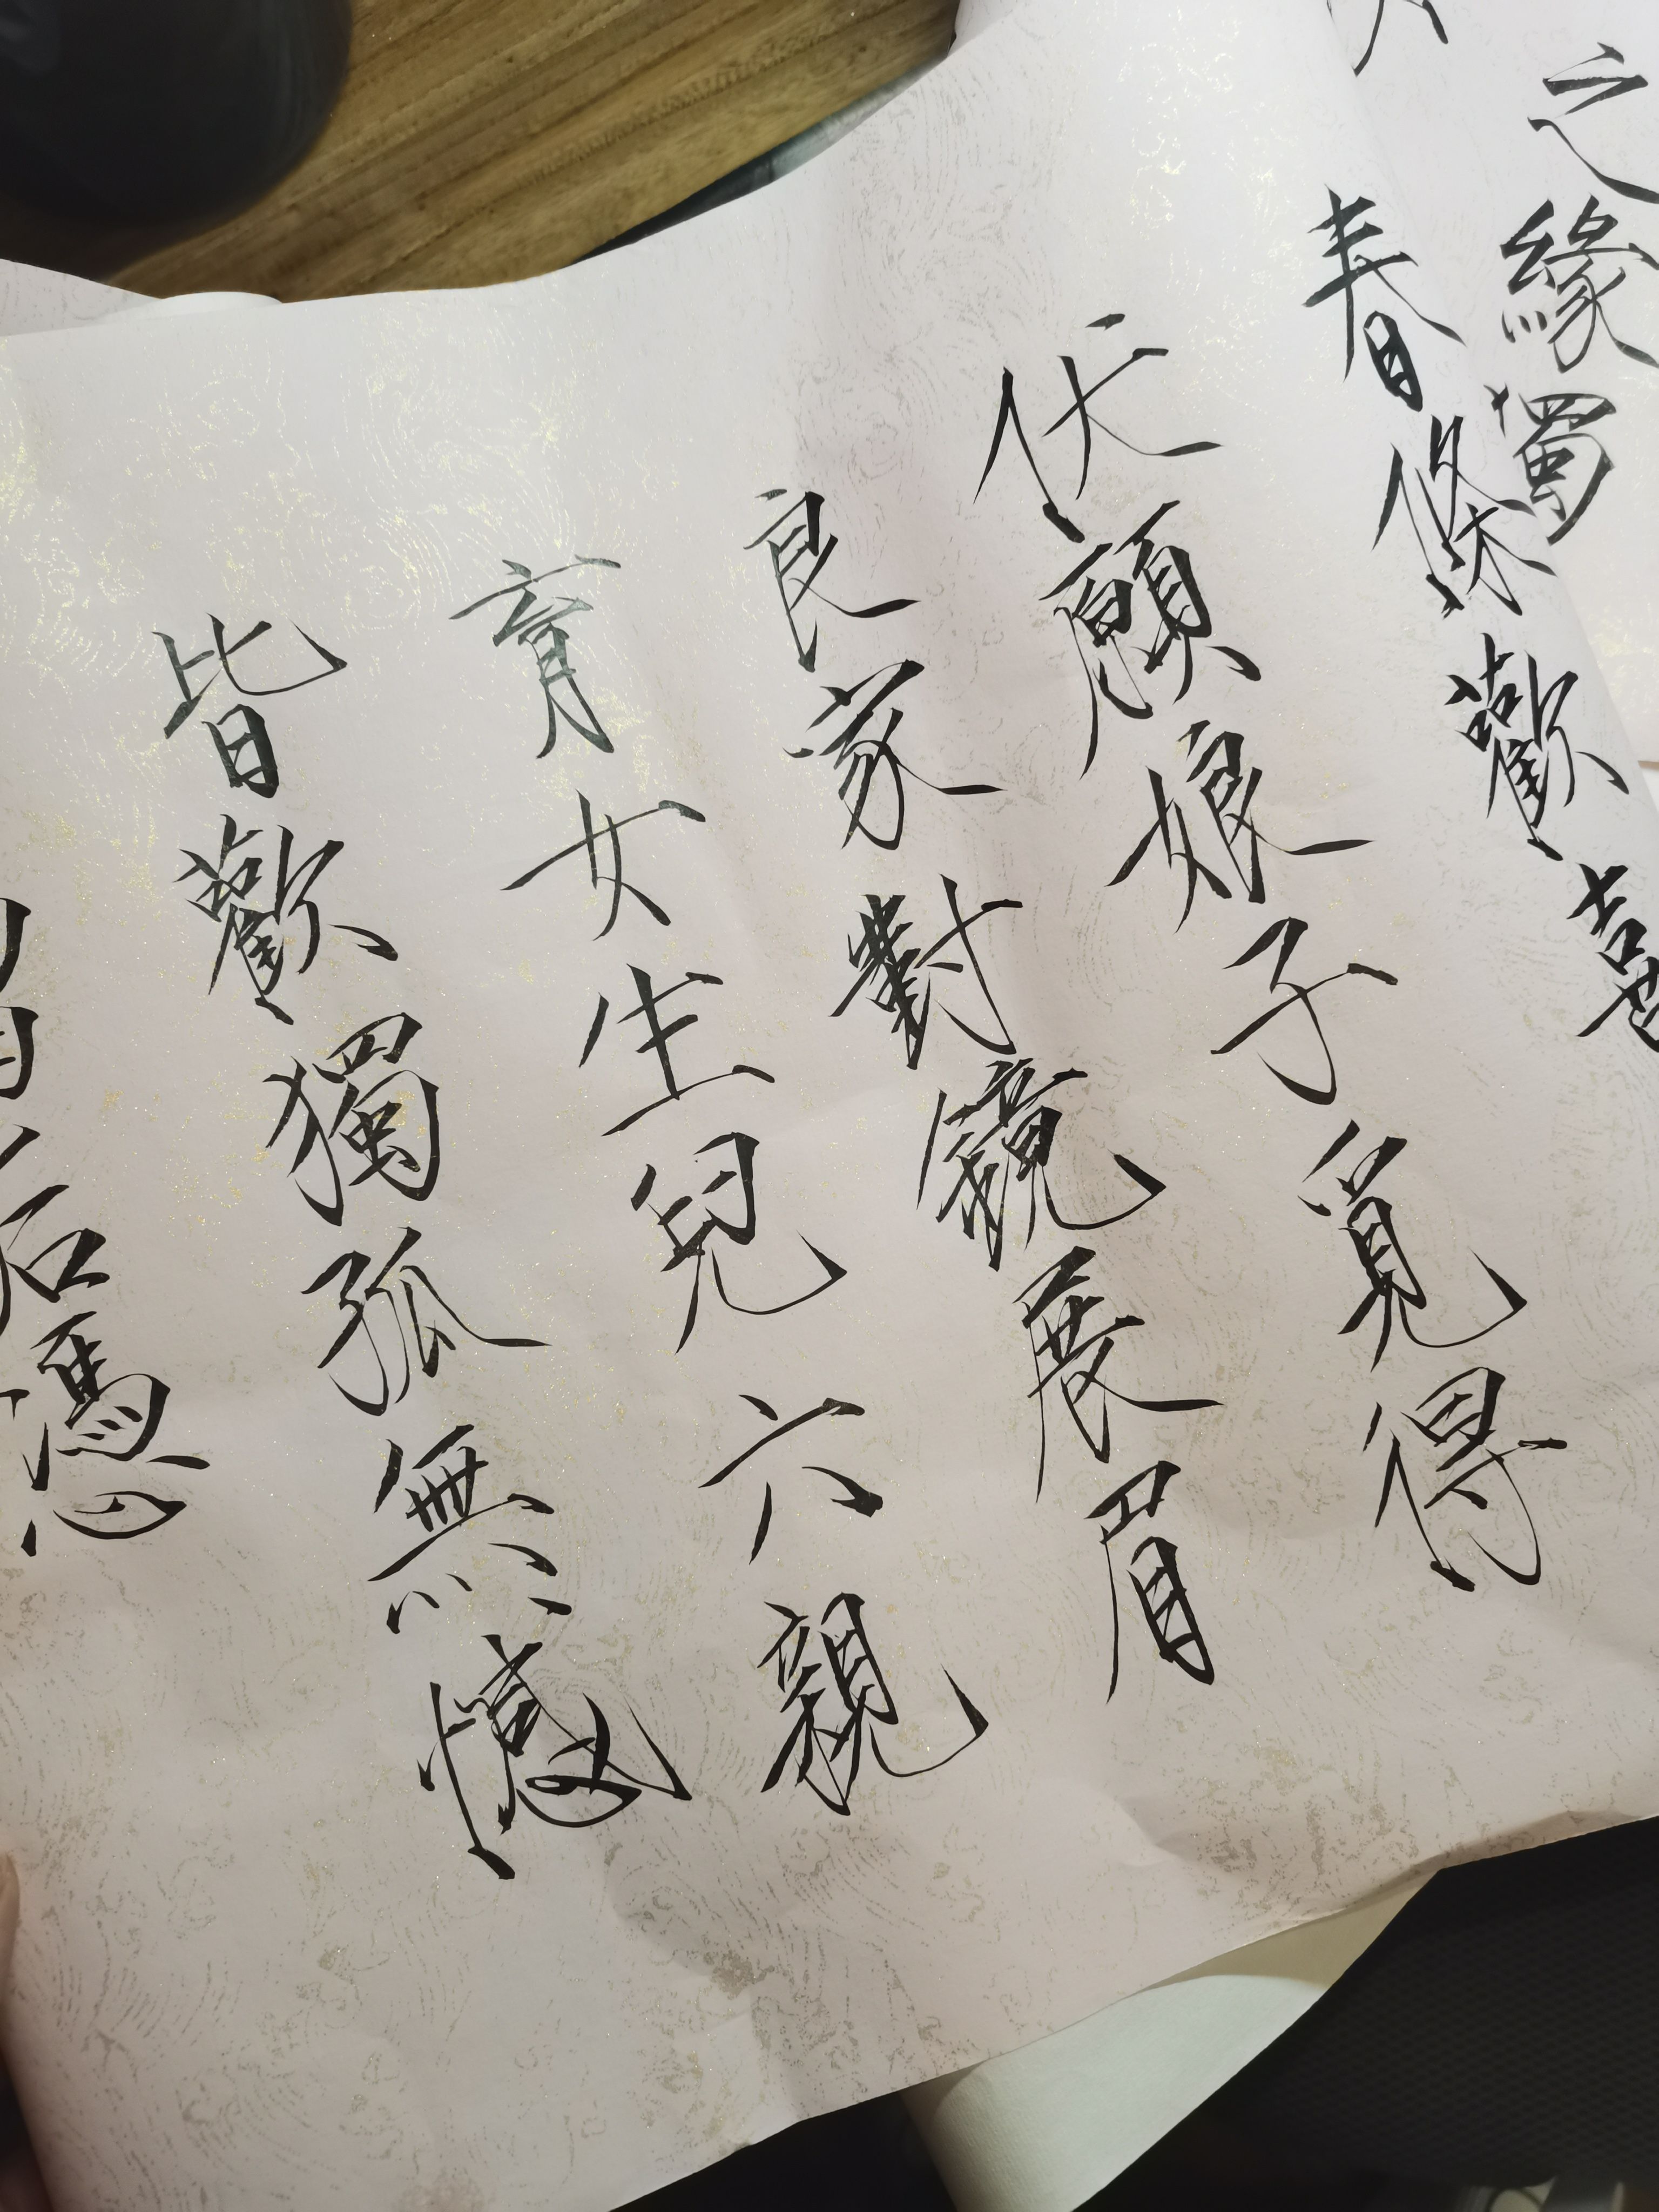 之緣
春條歡喜
伏願娘子覓得
良家對鏡展眉
育女生兒六親
皆歡獨孤無憾
憑